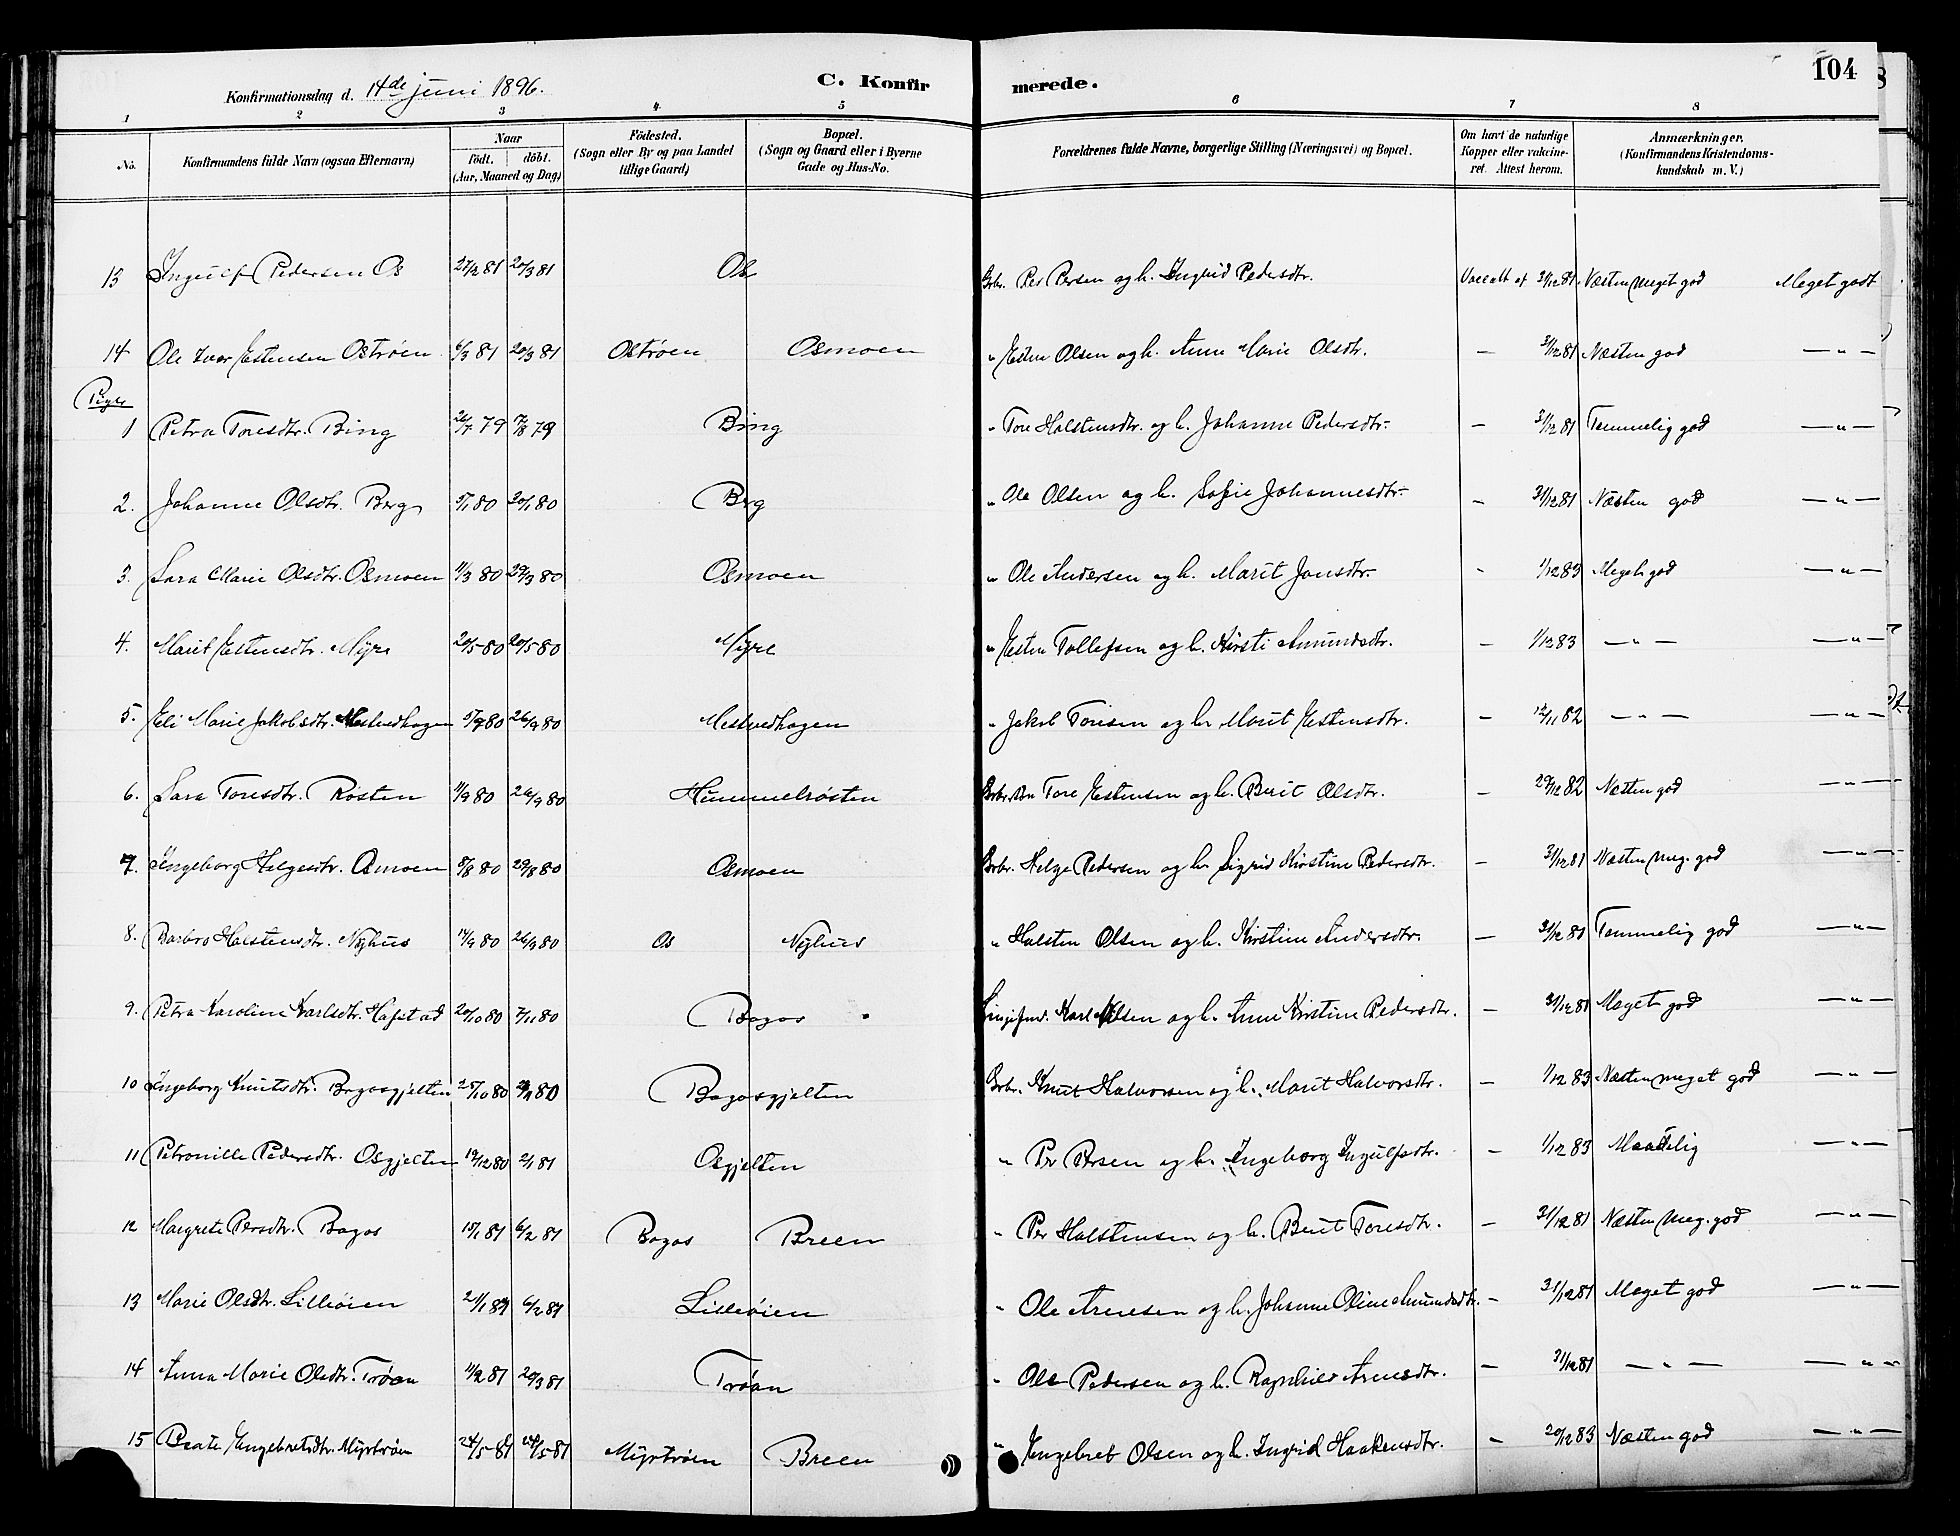 104
C. Konfirmerede.
Konfirmationsdag d. 14de juni 1896.
1 2 3 4 5 6 7 8
No. Konfirmandens fulde Navn (ogsaa Efternavn) Naar födt. döbt. (Aar, Maaned og Dag) Födested. (Sogn eller By og paa Landet tillige Gaard) Bopæl. (Sogn og Gaard eller i Byerne Gade og Hus-No. Forældrenes fulde Navne, borgerlige Stilling (Næringsvei) og Bopæl. Om havt de naturlige Kopper eller vaccineret. Attest herom. Anmærkninger. (Konfirmandens Kristendomskundskab m. V.)
13 Ingulf Pedersen Os 27/2 81 20/3 81 Os Gbr. Per Persen og h. Ingrid Pedersdtr. 31/12 81 Næsten meget god Meget godt
14 Ole Ivar Estensen Ostrøen 6/3 81 20/3 81 Ostrøen Osmoen " Esten Olsen og h. Anne Marie Olsdtr. — 31/12 81 Næsten god — " —
Piger
1 Petra Toresdtr. Bing 26/7 79 17/8 79 Bing " Tore Halstensdtr. og h. Johanne Pedersdtr. — 31/12 81 Temmelig god — " —
2. Johanne Olsdtr. Berg 5/1 80 20/1 80 Berg " Ole Olsen og h. Sofie Johannesdtr. — 31/12 81 Næsten god — " —
3. Sara Marie Olsdtr. Osmoen 11/3 80 29/3 80 Osmoen " Ole Andersen og h. Marit Jonsdtr. - 1/12 83 Meget god — " —
4. Marit Estensdtr. Myre 20/5 80 20/5 80 Myre " Esten Tollefsen og h. Kirsti Amundsdtr. — 1/12 83 — " — — " —
5. Eli Marie Jakobsdtr. Mestvedhagen 5/9 80 26/9 80 Mestvedhagen " Jakob Toresen og h. Marit Estensdtr. — 12/11 82 — " — — " —
6. Sara Toresdtr. Røsten 11/9 80 26/9 80 Hummelrøsten Tore Estensen og h. Berit Olsdtr. — 29/12 82 Næsten god — " —
7. Ingeborg Helgesdtr. Osmoen 8/8 80 29/8 80 Osmoen Gbr. Helge Pedersen og h. Sigrid Kirstine Pedersdtr. — 31/12 81 Næsten meg. god — " —
8. Barbro Halstensdtr. Nyhus 14/9 80 26/9 80 Os Nyhus " Halsten Olsen og h. Kirstine Andersdtr. — 31/12 81 Temmelig god — " —
9. Petra Karoline Karlsdtr. Hafstad 20/10 80 7/11 80 Bagos Karl Olsen og h. Anne Kirstine Pedersdtr. — 31/12 81 Meget god — " —
10 Ingeborg Knutsdtr. Bagosgjelten 25/10 80 Bagosgjelten Gbr. Knut Halvorsen og h. Marit Halvorsdtr. — 1/12 83 Næsten meget god — " —
11 Petronille Pedersdtr. Osgjelten 19/12 80 2/1 81 Osgjelten " Per Persen og h. Ingeborg Ingulfsdtr. — 1/12 83 Maadelig — " —
12 Margrete Persdtr. Bagos 15/1 81 6/2 81 Bagos Breen " Per Halstensen og h. Berit Toresdtr. — 31/12 81 Næsten meg. god — " —
13 Marie Olsdtr. Lilleøien 21/1 81 6/2 81 Lilleøien " Ole Arnesen og h. Johanne Oline Amundsdtr. — 31/12 81 Meget god — " —
14 Anna Marie Olsdtr. Trøan 11/2 81 20/3 81 Trøan " Ole Pedersen og h. Ragnhild Arnesdtr. — 31/12 81 — " — — " —
15 Beate Engebretsdtr. Myrtrøen 24/5 81 Myrtrøen Breen " Engebret Olsen og h. Ingrid Haakensdtr. — 20/12 83 Næsten god — " —